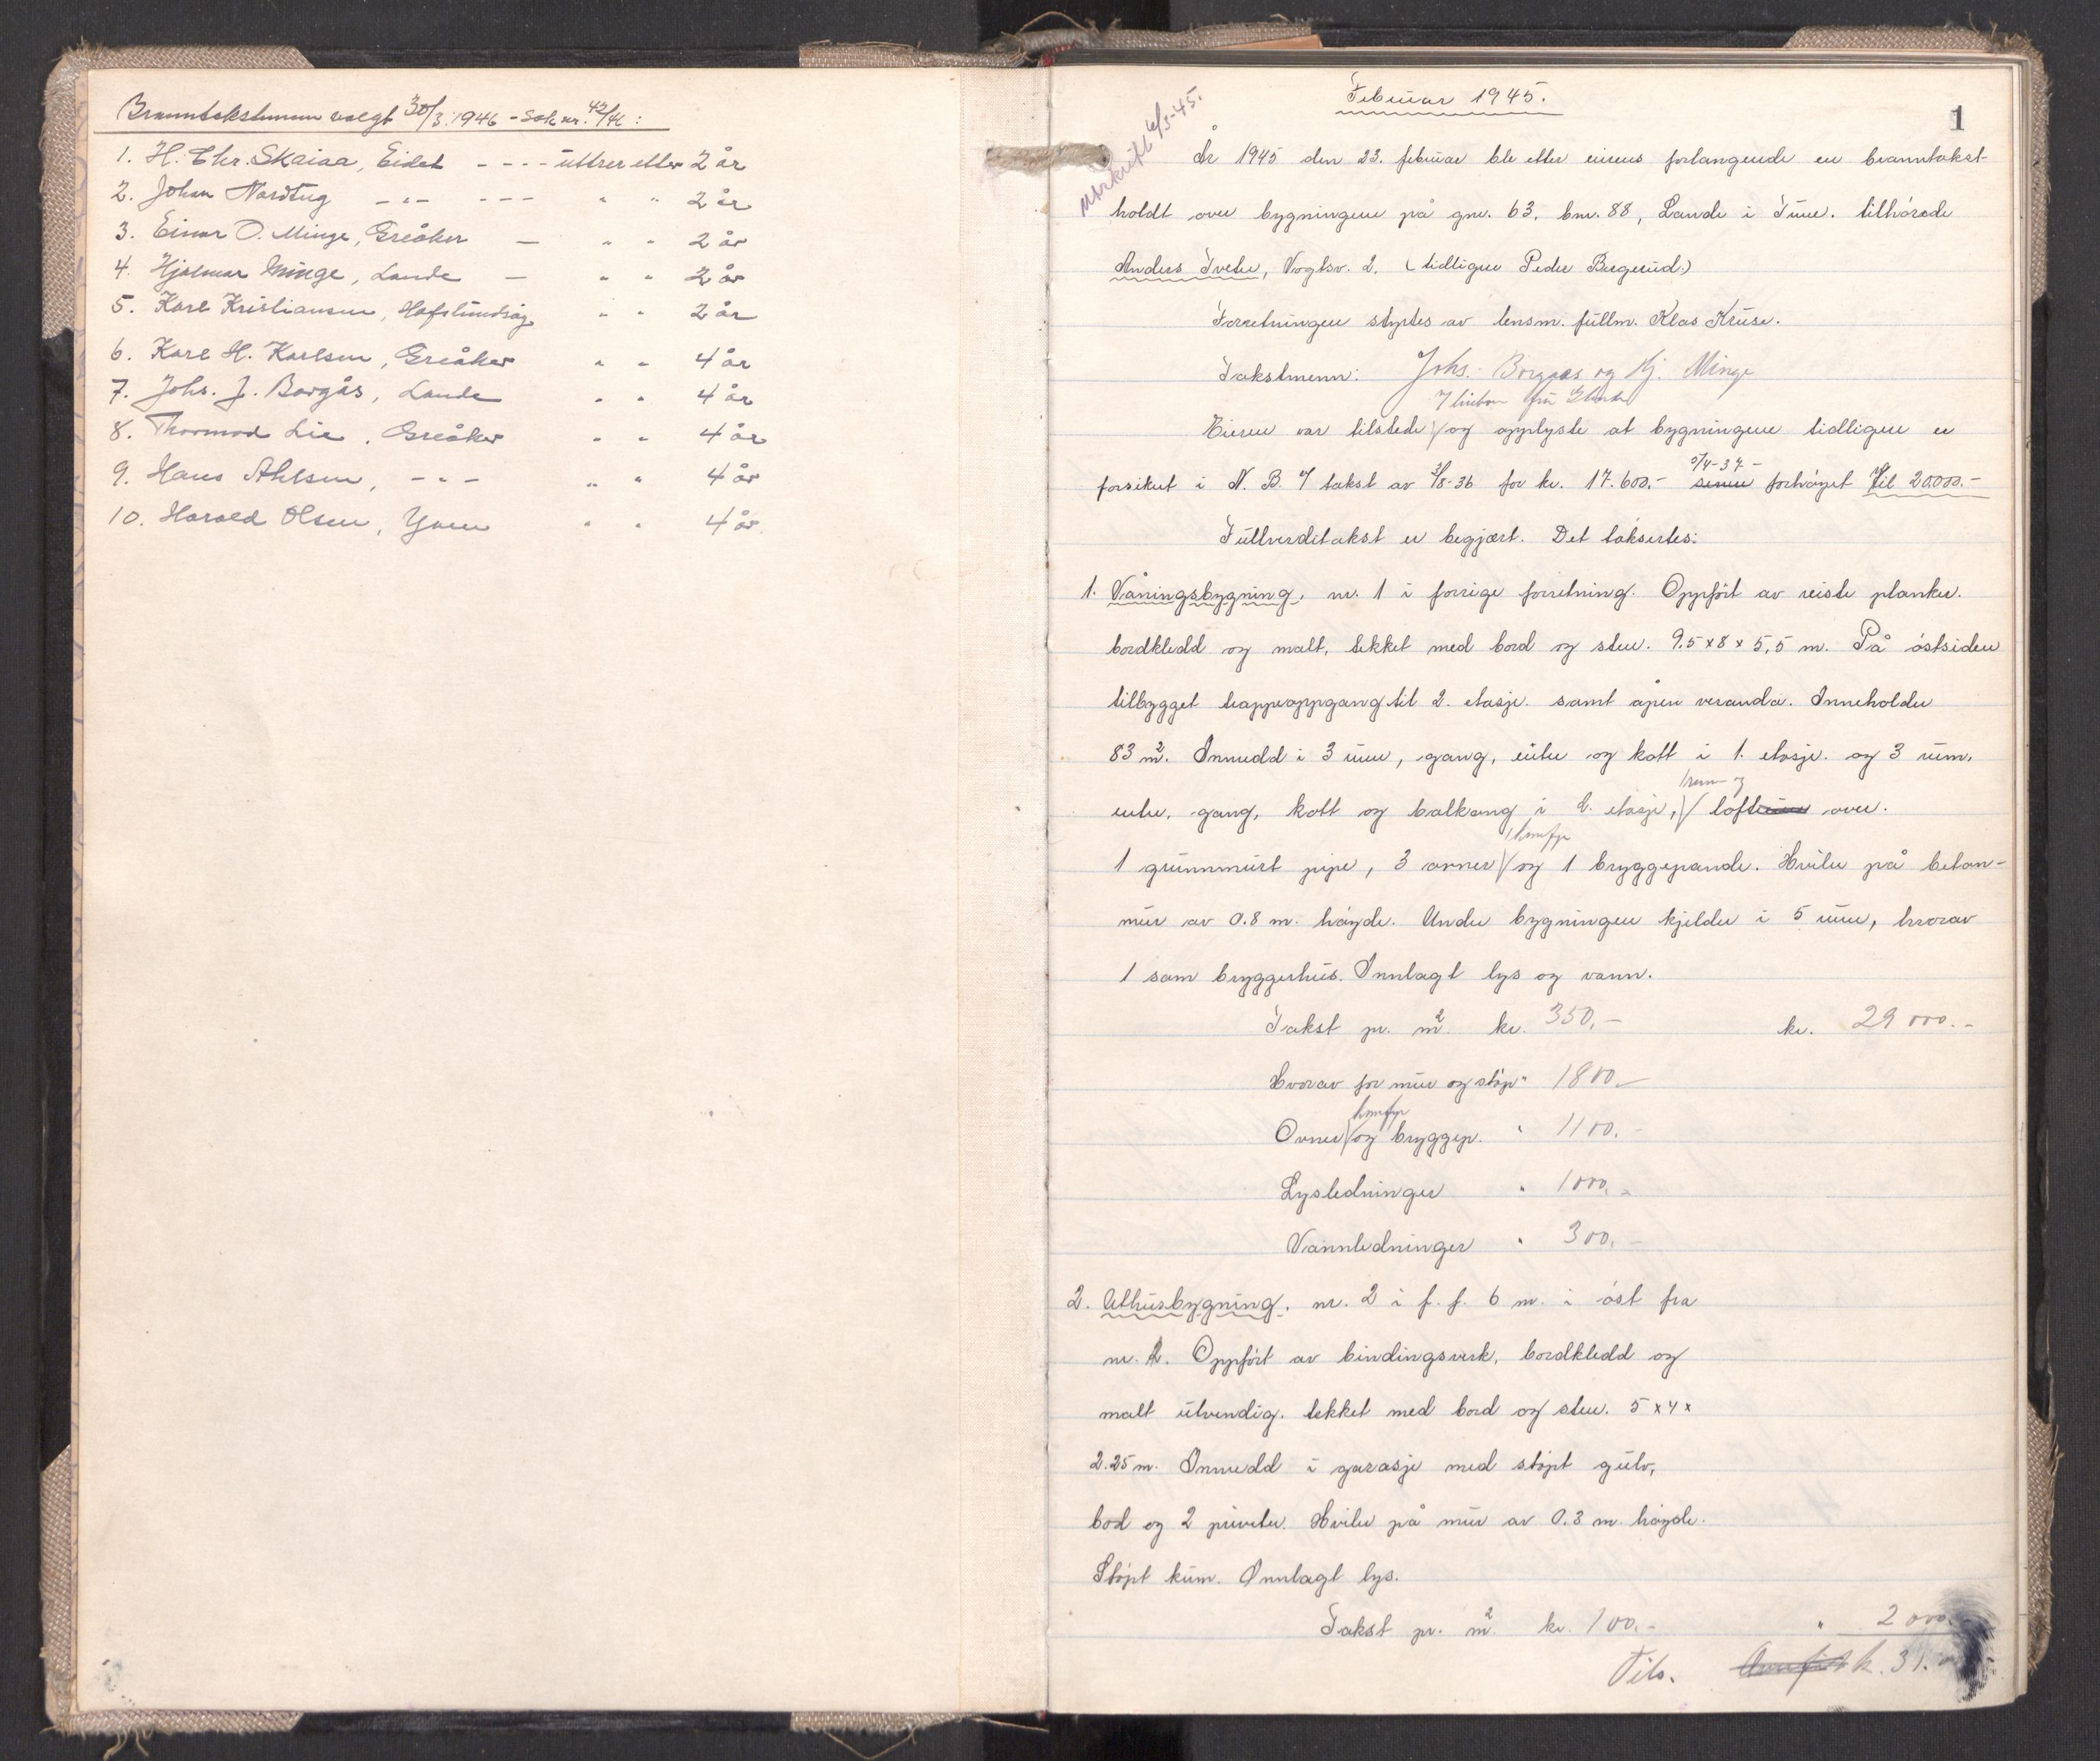 Branntakstmenn valgt 30/3.1946 - Sak nr. 42/46:
1. H. Chr. Skaiaa, Eidet - - - - uttrer etter 2 år
2. Johan Nordtug - " - - - - " " 2 år
3. Einar O. Minge, Greåker — " " 2 år
4. Hjalmar Minge, Lande — " " 2 år
5. Karl Kristiansen, Hafslundsøy " " 2 år
6. Karl H. Karlsen, Greåker " " 4 år
7. Johs. J. Borgås, Lande " " 4 år
8. Thormod Lie, Greåker " " 4 år
9. Hans Ahlsen, - " - " " 4 år
10. Harald Olsen, Yven " " 4 år.
Februar 1945.
1
Utskrift 6/3-45.
År 1945 den 23. februar ble etter eierens forlangende en branntakst
holdt over bygningene på gnr. 63, bnr. 88, Lande i Tune. tilhørende
Anders Tveter, Vogtsv. 2. (tidligere Peder Bergerud.)
Forretningen styrtes av lensm. fullm. Klas Kruse.
Takstmenn: Johs. Borgaas og Hj. Minge
Eieren var tilstede og opplyste at bygningene tidligere er
9/4-37-
forsikret i N. B. e/ takst av 3/8-36 for kr. 17.600.- senere forhøyet til 20000.-
Fullverditakst er begjært. Det takseres:
1. Våningsbygning, nr. 1 i forrige forretning. Oppført av reiste planker.
bordkledd og malt, tekket med bord og sten. 9.5 x 8 x 5,5 m. På østsiden
tilbygget trappeoppgang til 2. etasje samt åpen veranda. Inneholder
83 m². Innredd i 3 rum, gang, entre og kott i 1. etasje og 3 rum,
entre, gang, kott og balkong i 2. etasje, loft over.
komfyr
1 grunnmurt pipe, 3 ovner og 1 bryggepande. Hviler på beton-
mur av 0.8 m. høyde. Under bygningen kjelder i 5 rum, hvorav
1 som bryggerhus. Innlagt lys og vann.
Takst pr. m² kr. 350,- kr. 29 000.-
Hvorav for mur og støp " 1800.-
komfyr
Ovner og bryggep. " 1100.-
Lysledninger " 1000.-
Vannledninger " 300.-
2. Uthusbygning, nr. 2 i f. f. 6 m. i øst fra
nr. 1. Oppført av bindingsverk, bordkledd og
malt utvendig. tekket med bord og sten. 5 x 4 x
2.25 m. Innredd i garasje med støpt gulv,
bod og 2 priveter. Hviler på mur av 0.3 m. høyde.
Støpt kum. Innlagt lys.
Takst pr. m² kr. 100.- " 2 000.-
Tils. k. 31.